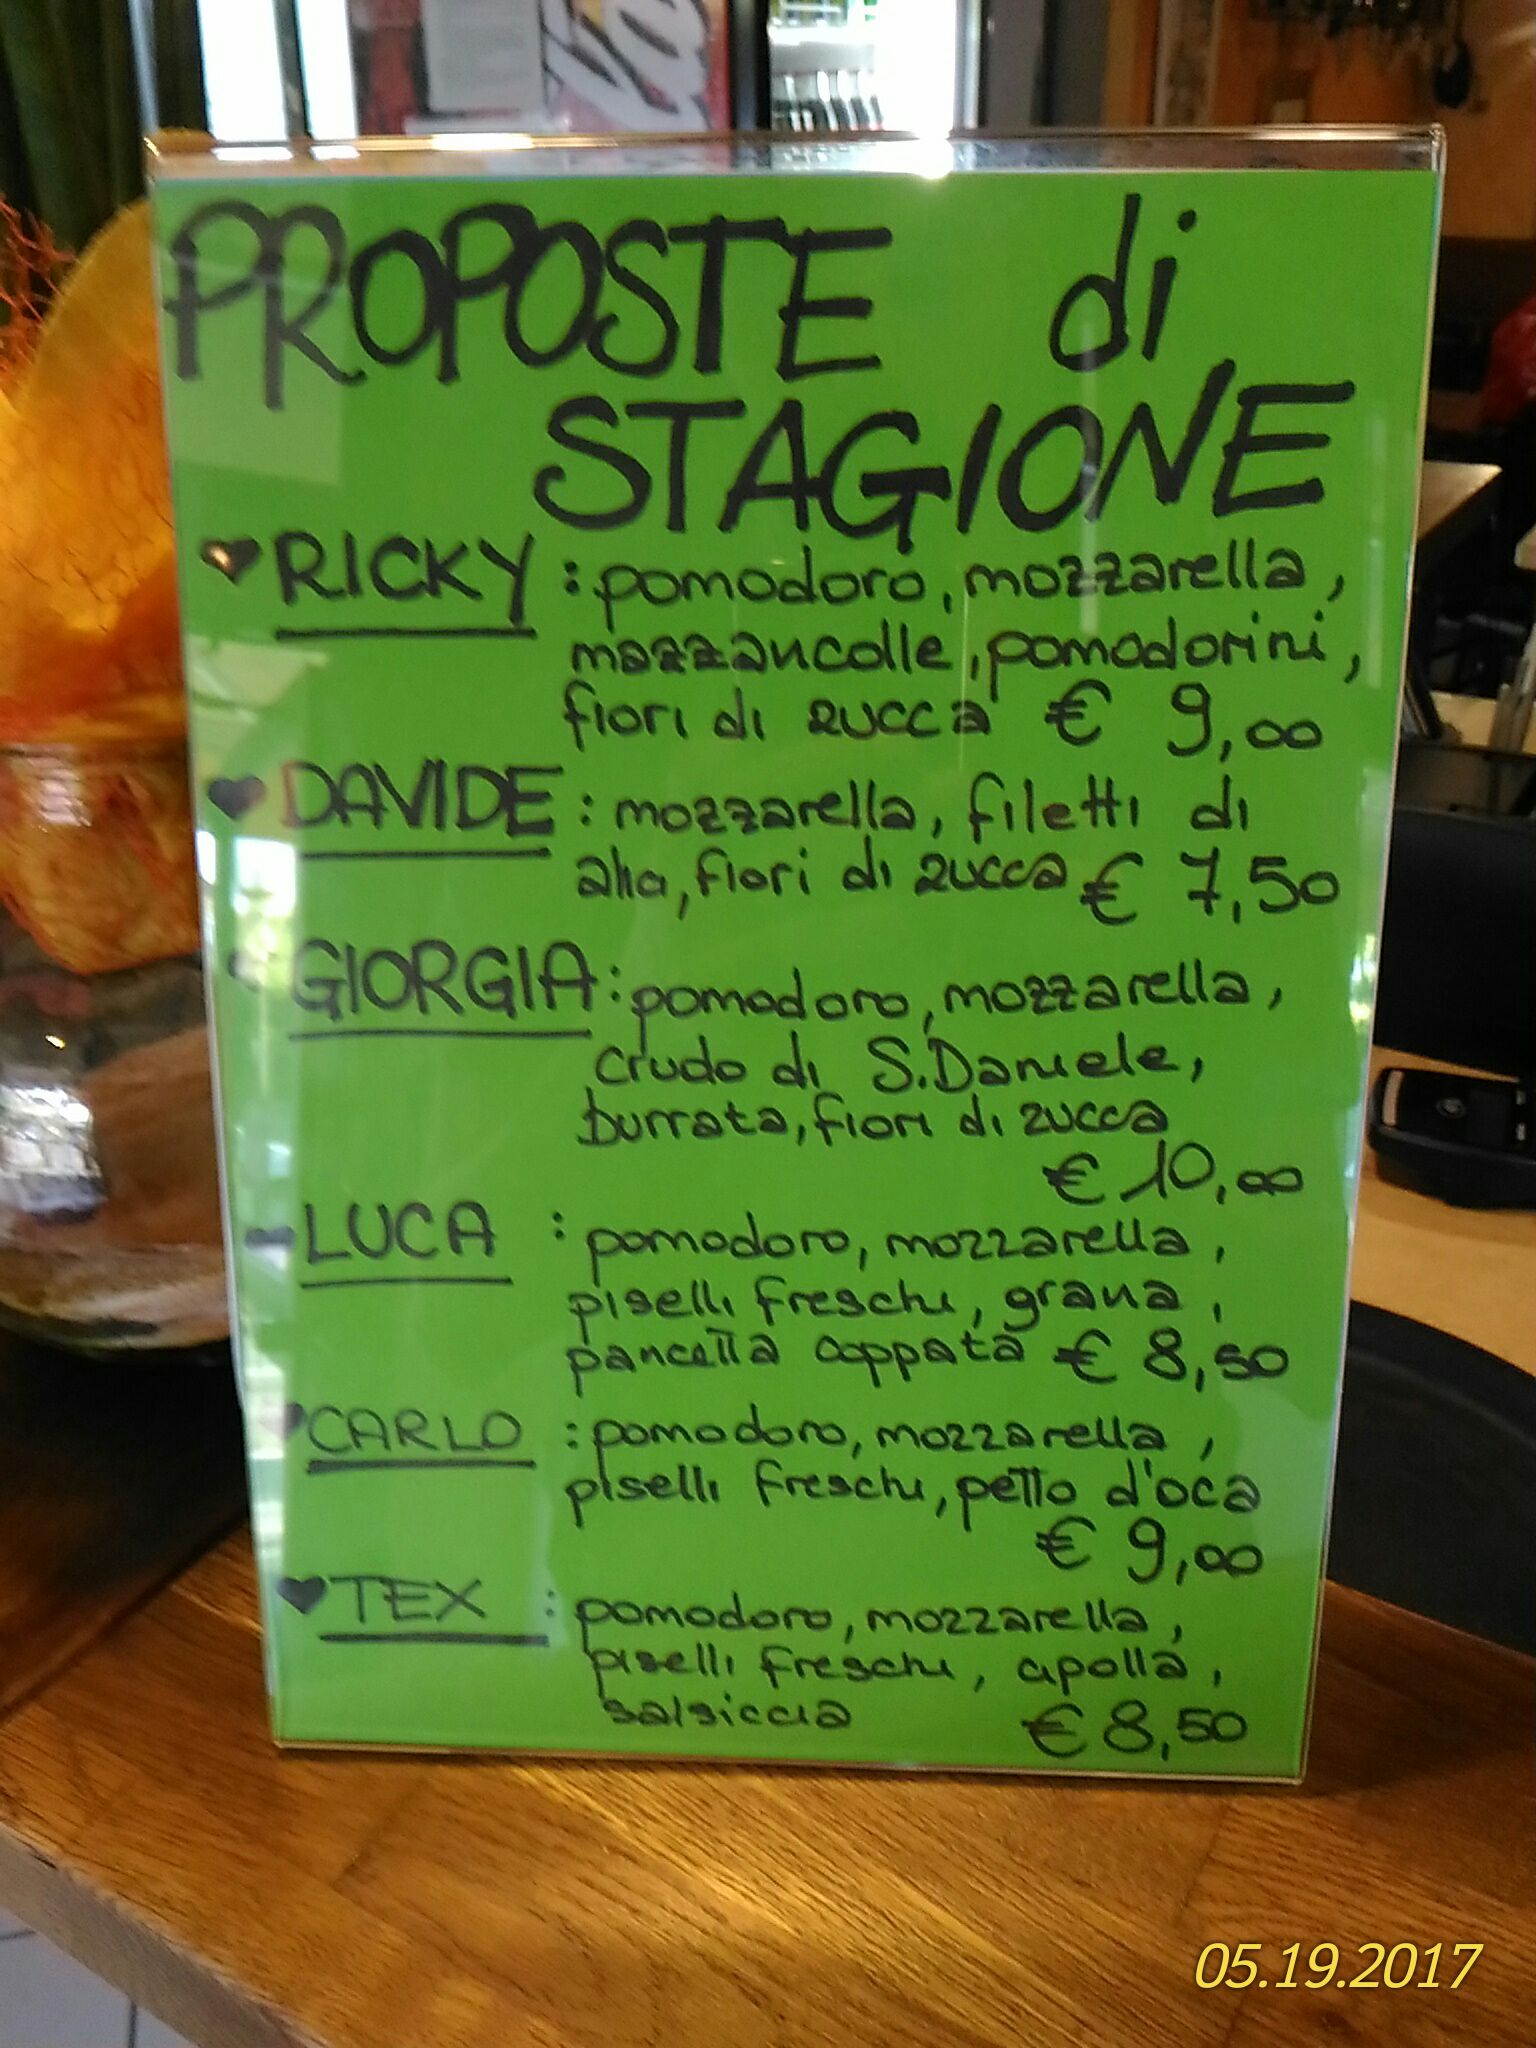 PROPOSTE di
STAGIONE
RICKY : pomodoro, mozzarella,
mazzancolle, pomodorini,
fiori di zucca € 9,00
DAVIDE : mozzarella, filetti di
alici, fiori di zucca € 7,50
GIORGIA : pomodoro, mozzarella,
crudo di S. Daniele,
burrata, fiori di zucca
€ 10,00
LUCA : pomodoro, mozzarella,
piselli freschi, grana,
pancetta coppata € 8,50
CARLO : pomodoro, mozzarella,
piselli freschi, petto d'oca
€ 9,00
TEX : pomodoro, mozzarella,
piselli freschi, cipolla,
salsiccia € 8,50
05.19.2017